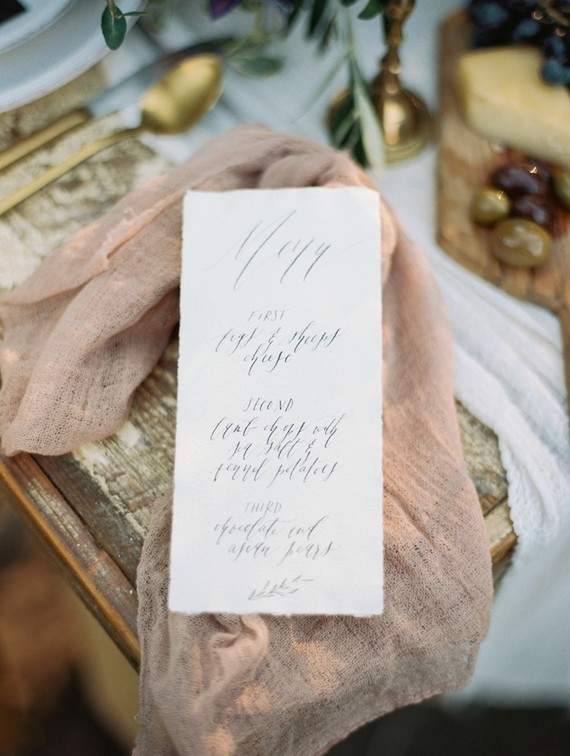 Menu
FIRST
figs & sheeps
cheese
SECOND
lamb chops with
sea salt &
fennel potatoes
THIRD
chocolate and
asian pears